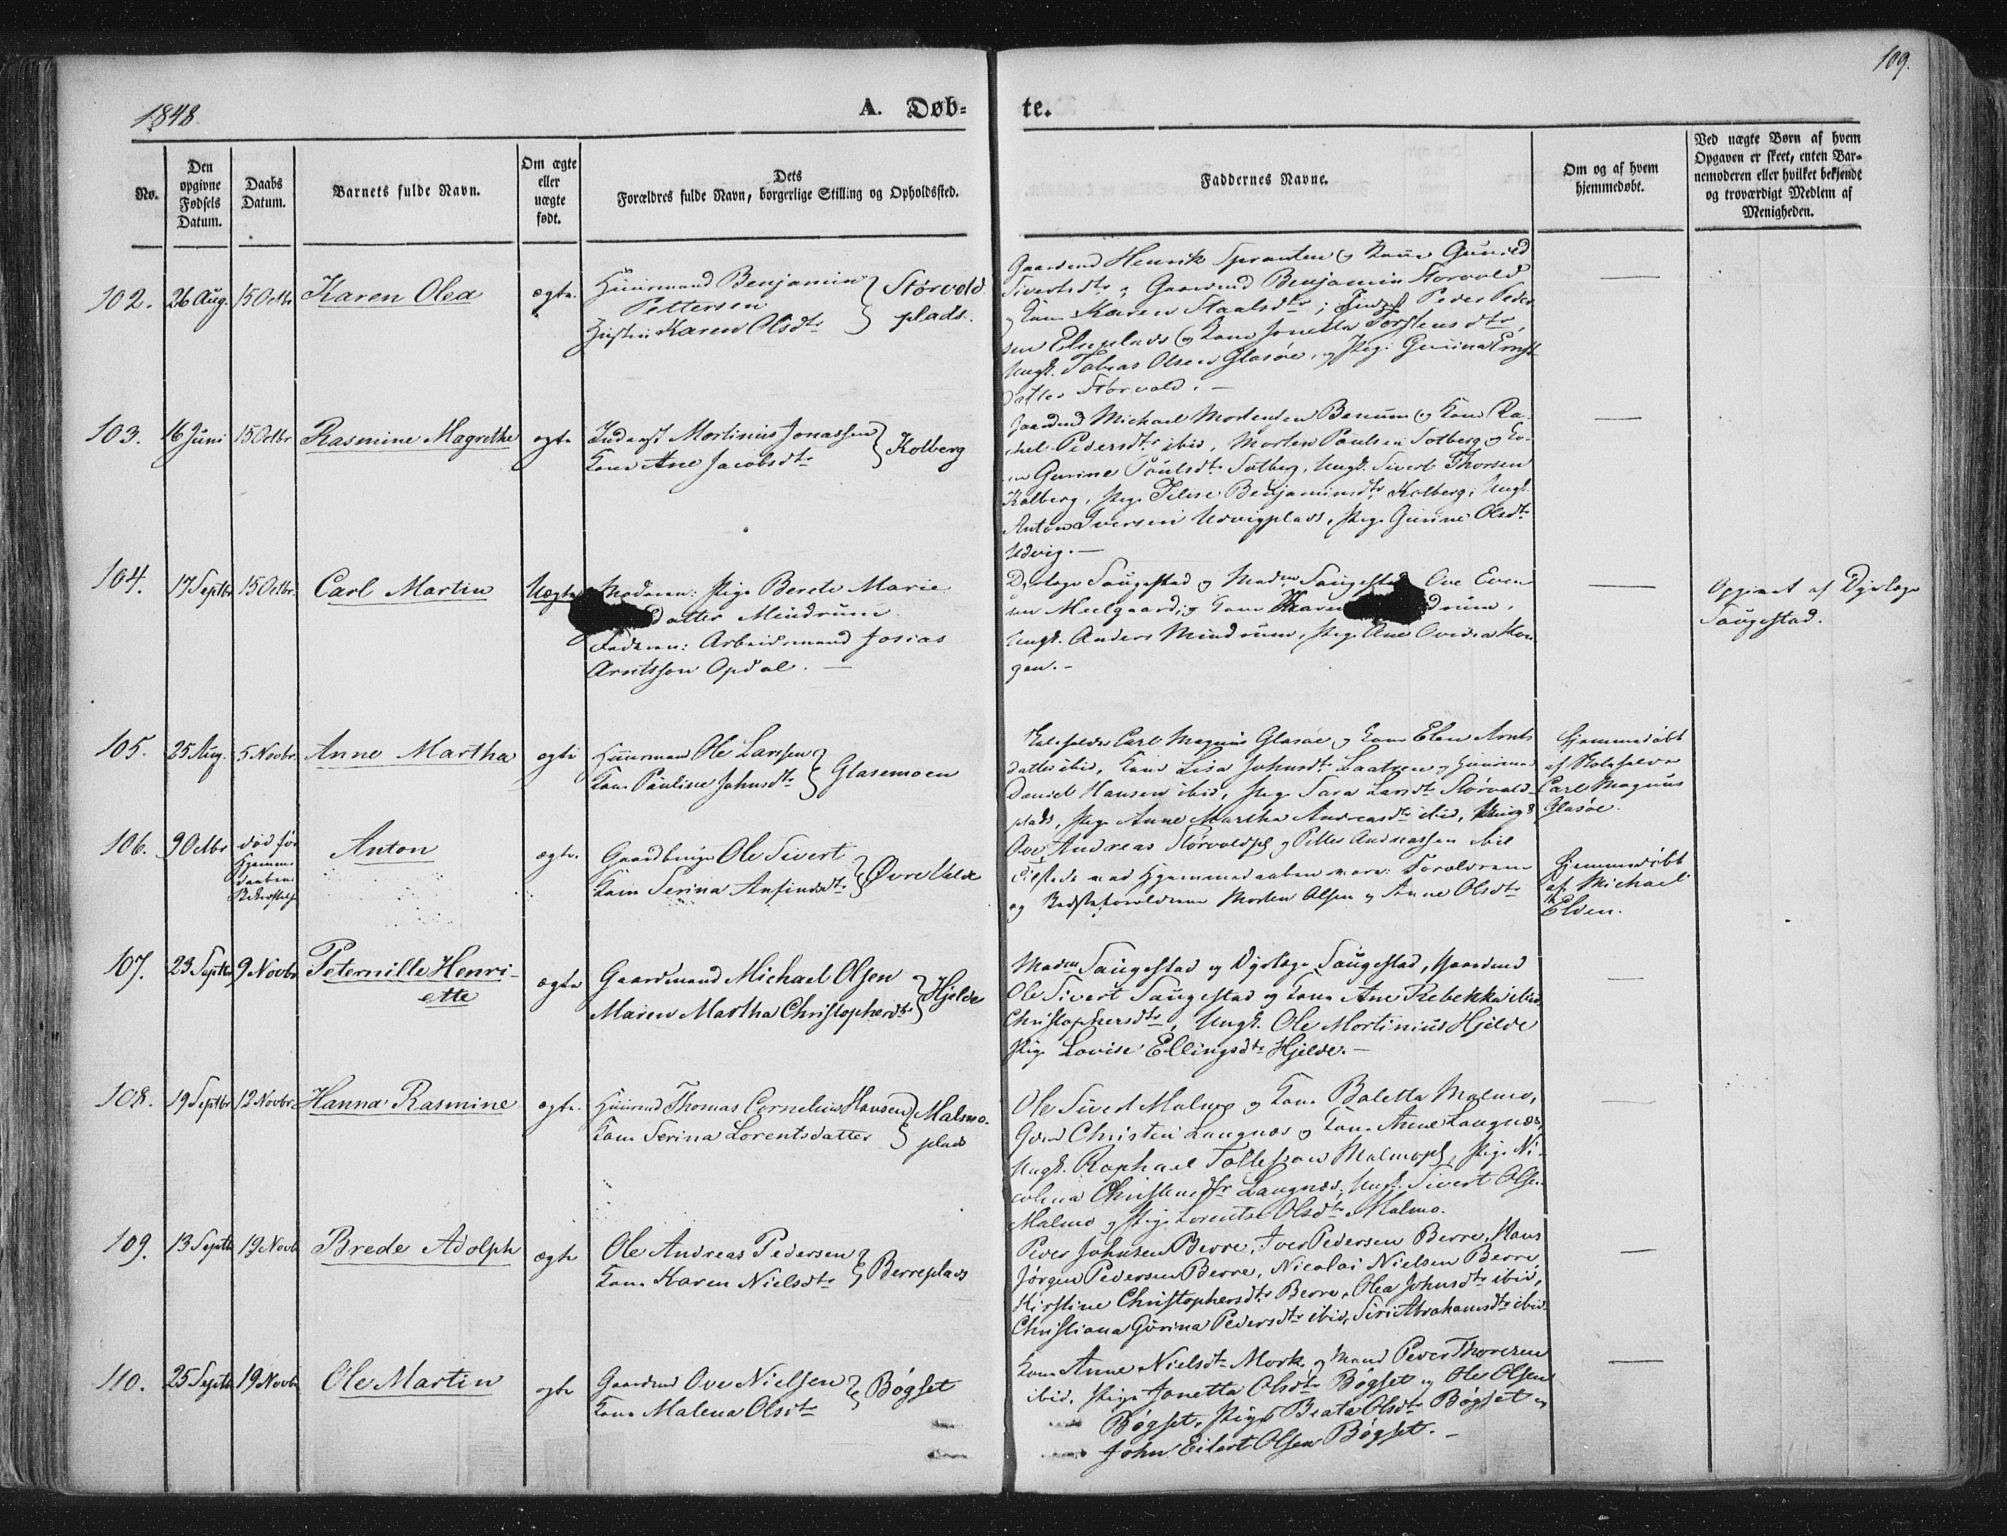 109.
1848
A. Døb-
te.
No.
Den opgivne Fødsels Datum.
Daabs Datum.
Barnets fulde Navn.
Om ægte eller uægte født.
Dets
Forældres fulde Navn, borgerlige Stilling og Opholdssted.
Faddernes Navne.
Om og af hvem hjemmedøbt.
Ved uægte Børn af hvem
Opgaven er skeet, enten Bar-
nemoderen eller hvilket bekjendt
og troværdigt Medlem af
Menigheden.
102. 26 Aug. 15 Octbr Karen Olea ægte
Huusmand Benjamin
Pettersen
Hustru Karen Olsdtr
Størvold
plads.
Gaardmd Henrik og Kone Gunild
Sivertsdtr og Gaardmd Benjamin Størvold
og Kone Karen Staalsdtr; Peder Peder
sen Elveplads og Kone Jonetta Torstensdtr,
Ungk. Tobias Olsen Glasøe, og Pige Gurina
datter Størvold. —
103. 16 Juni 15 Octbr Rasmine Magrethe ægte
Inderst Mortinus Jonassen
Kone Ane Jacobsdtr
Kolberg
Gaardmd Michael Mortensen Benum og Kone Ra-
chel Pedersdtr ibid, Morten Paulsen Solberg og Ko-
ne Gurine Paulsdtr Solberg, Ungk. Sivert Thorsen
Kolberg, Pige Benjaminsdtr Kolberg, Ungk.
Anton Iversen Udvigplads, Pige Gurine Olsdtr
Udvig. —
104. 17 Septbr 15 Octbr. Carl Martin Uægte
Moderen: Pige Berete Marie
datter Mindrum.
Faderen: Arbeidsmand Josias
Arntsson Opdal. —
Dyrlæge Saugestad og Madm Saugestad, Ove Even
sen Melgaard, og Kone Maren drum,
Ungk. Anders Mindrum, Pige Ane Ovidia Kon
gen. —
Opgivet af Dyrlæge
Saugestad.
105. 25 Aug. 5 Novbr. Anne Martha ægte
Huusmand Ole Larssen
Kone Pauline Johnsdtr
Glasemoen
Carl Magnus Glasøe og Kone Elen Arnts
datter ibid, Kone Lisa Johnsdtr Laatren og Huusmd
Daniel Hansen ibid, Pige Sara Larsdtr Størvold-
plads, Pige Anne Martha Andreasdtr ibid, Ungk
Ove Andreas Størvoldpl og Petter Andreassen ibid
Hjemmedøbt
af
Carl Magnus
Glasøe.
106. 9 Octbr død før
Hjemme-
daabens
Bekræftelse
Anton ægte.
Gaardbruger Ole Sivert
Kone Serina Anfindsdtr
Øvre Velde
Tilstede ved Hjemmedaaben vare: Forældrene
og Bedsteforældrene Morten Olsen og Anne Olsdtr
Hjemmedøbt
af Michael
Elden.
107. 23 Septbr 9 Novbr Peternille Henri-
ette ægte
Gaardmand Michael Olsen
Maren Martha Christophersdtr
Hjelde
Madm Saugestad og Dyrlæge Saugestad, Gaardmd
Ole Sivert Saugestad og Kone Ane Rebekka ibid
Christophersdtr, Ungk. Ole Mortinius Hjelde
Pige Lovise Ellingsdtr Hjelde. —
108. 19 Septbr 12 Novbr. Hanna Rasmine ægte.
Huusmd Thomas Cornelius Hansen
Kone Serina Lorentsdatter
Malmo-
plads
Ole Siverd Malmo og Kone Baletta Malmo,
Gmd Christen Langnæs og Kone Anne Langnæs,
Ungk. Raphael Tollefsen Malmopl, Pige Ni-
colina Christensdtr Langnæs, Ungk. Sivert Olsen
Malmo og Pige Lorentse Olsdtr Malmo.
109. 13 Septbr 19 Novbr Brede Adolph ægte
Ole Andreas Pedersen
Kone Karen Nielsdtr
Berreplads
Peder Johnsen Berre, Iver Pedersen Berre, Hans
Jørgen Pedersen Berre, Nicolai Nielsen Berre,
Kirstine Christophersdtr Berre, Olea Johnsdtr ibid,
Christiana Gurina Pedersdtr ibid, Siri Abrahamsdtr ibid.
110. 25 Septbr 19 Novbr Ole Martin ægte
Gaardmd Ove Nielsen
Kone Malena Olsdtr
Bøgset
Kone Anne Nielsdtr Mork og Mand Peder Thoresen
ibid, Pige Jonetta Olsdtr Bøgset og Ole Olsen
Bøgset, Pige Beata Olsdtr Bøgset og
John Eilert Olsen Bøgset. —